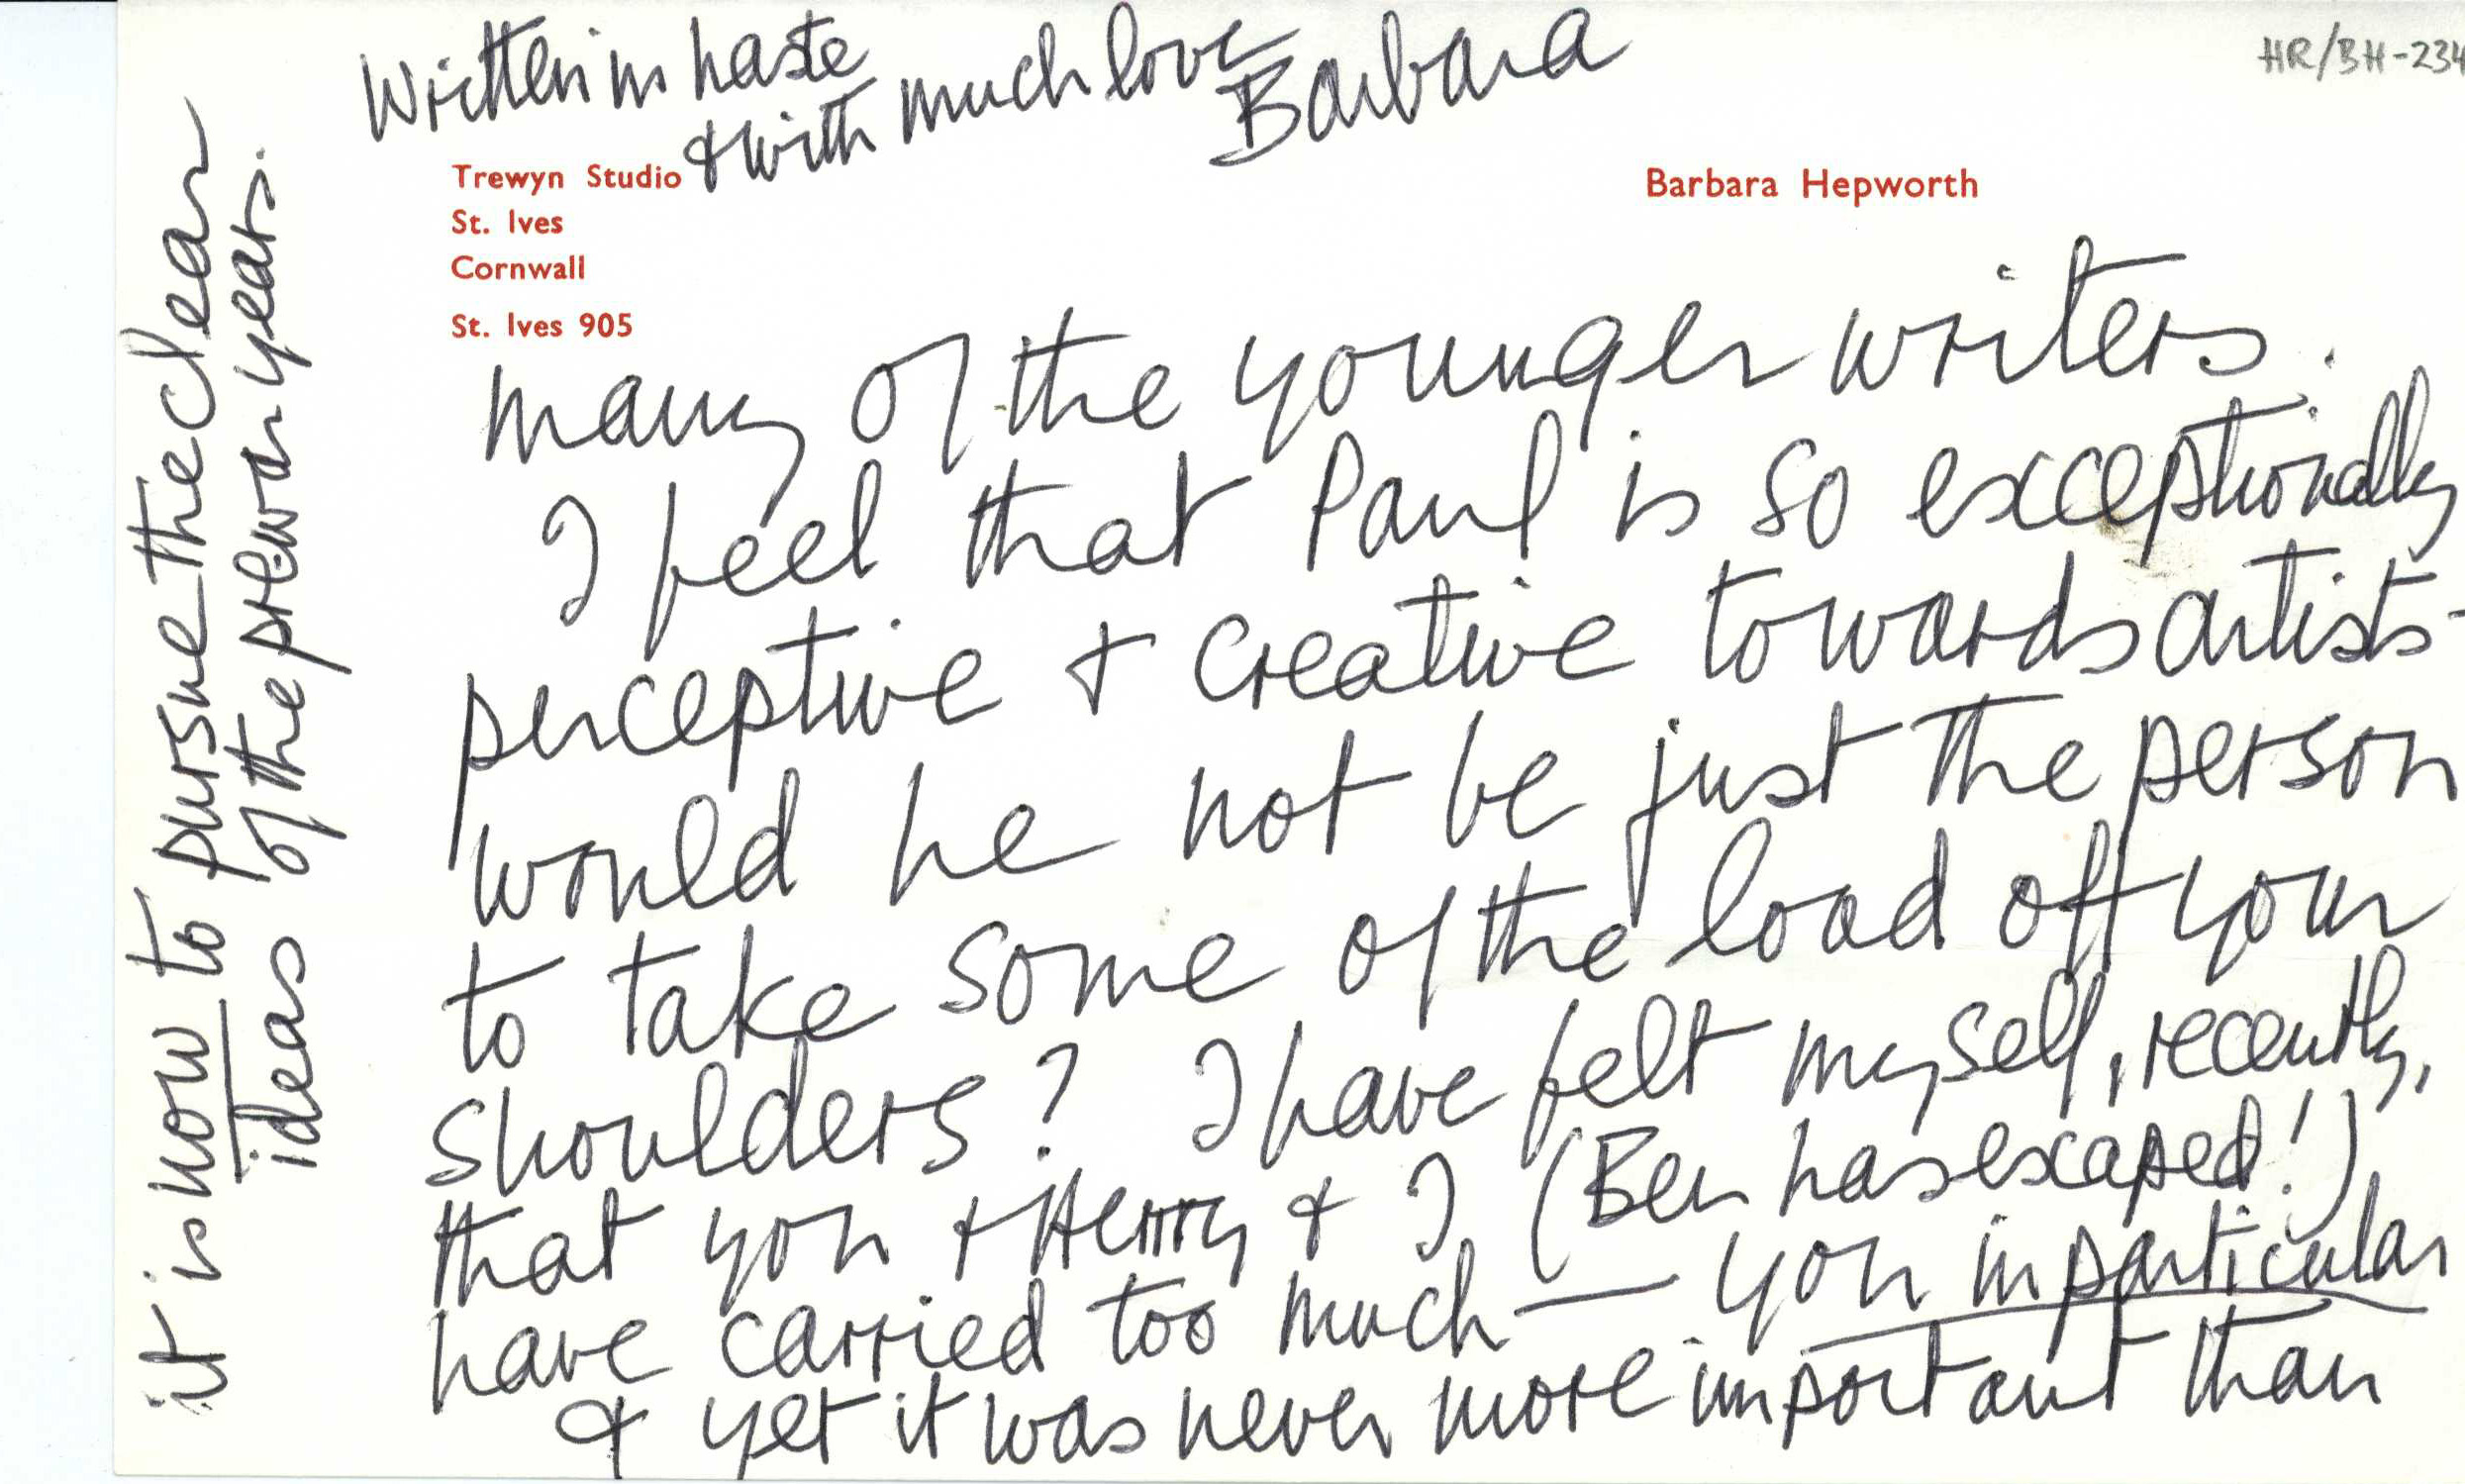 HR/BH-234
Trewyn Studio
St. Ives
Cornwall
St. Ives 905
Barbara Hepworth
many of the younger writers.
I feel that Paul is so exceptionally
perceptive & creative towards artists -
would he not be just the person
to take some of the load off your
shoulders? I have felt myself, recently,
that you & Henry & I (Ben has escaped!)
have carried too much — you in particular
& yet it was never more important than
it is now to pursue the clear
ideas of the prewar years.
Written in haste
& with much love
Barbara